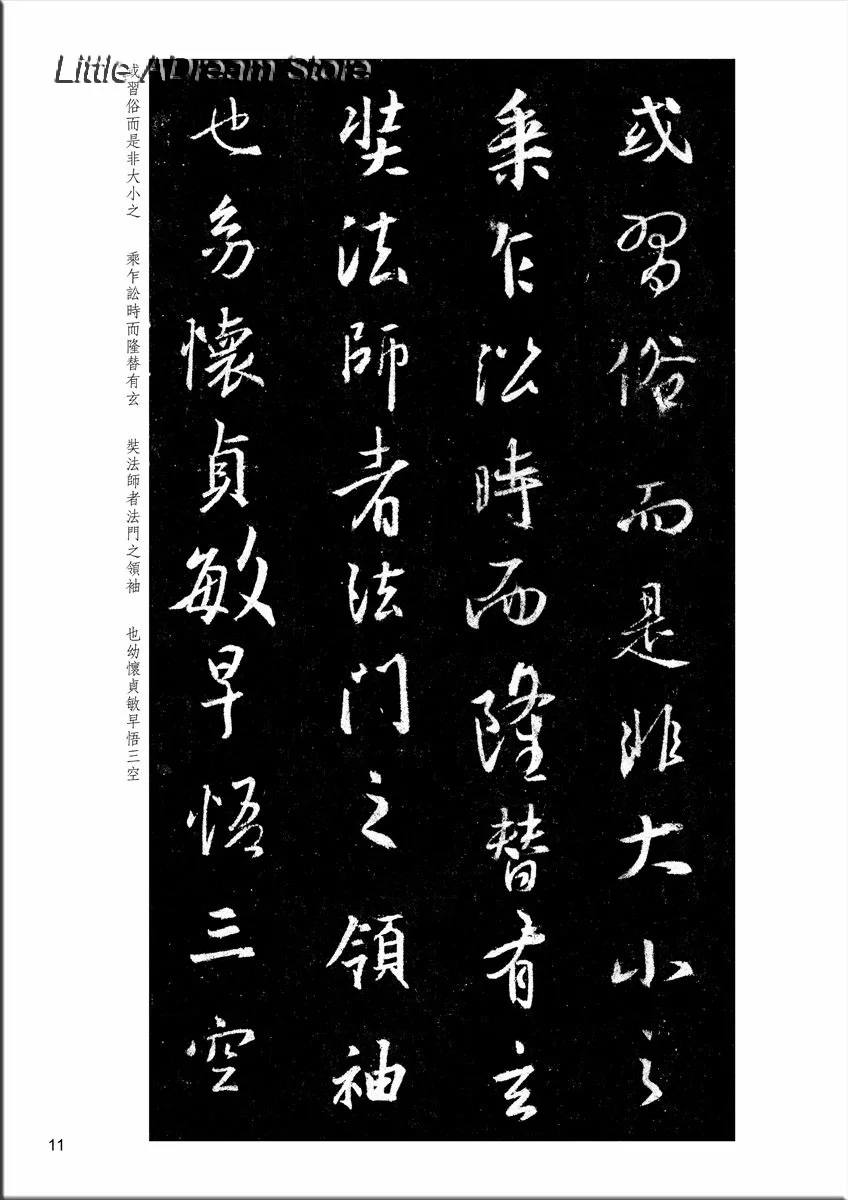 Little ADream Store
或習俗而是非大小之
乘乍沿時而隆替有玄
奘法師者法門之領袖
也幼懷貞敏早悟三空
或習俗而是非大小之 乘乍訟時而隆替有玄 奘法師者法門之領袖 也幼懷貞敏早悟三空
11